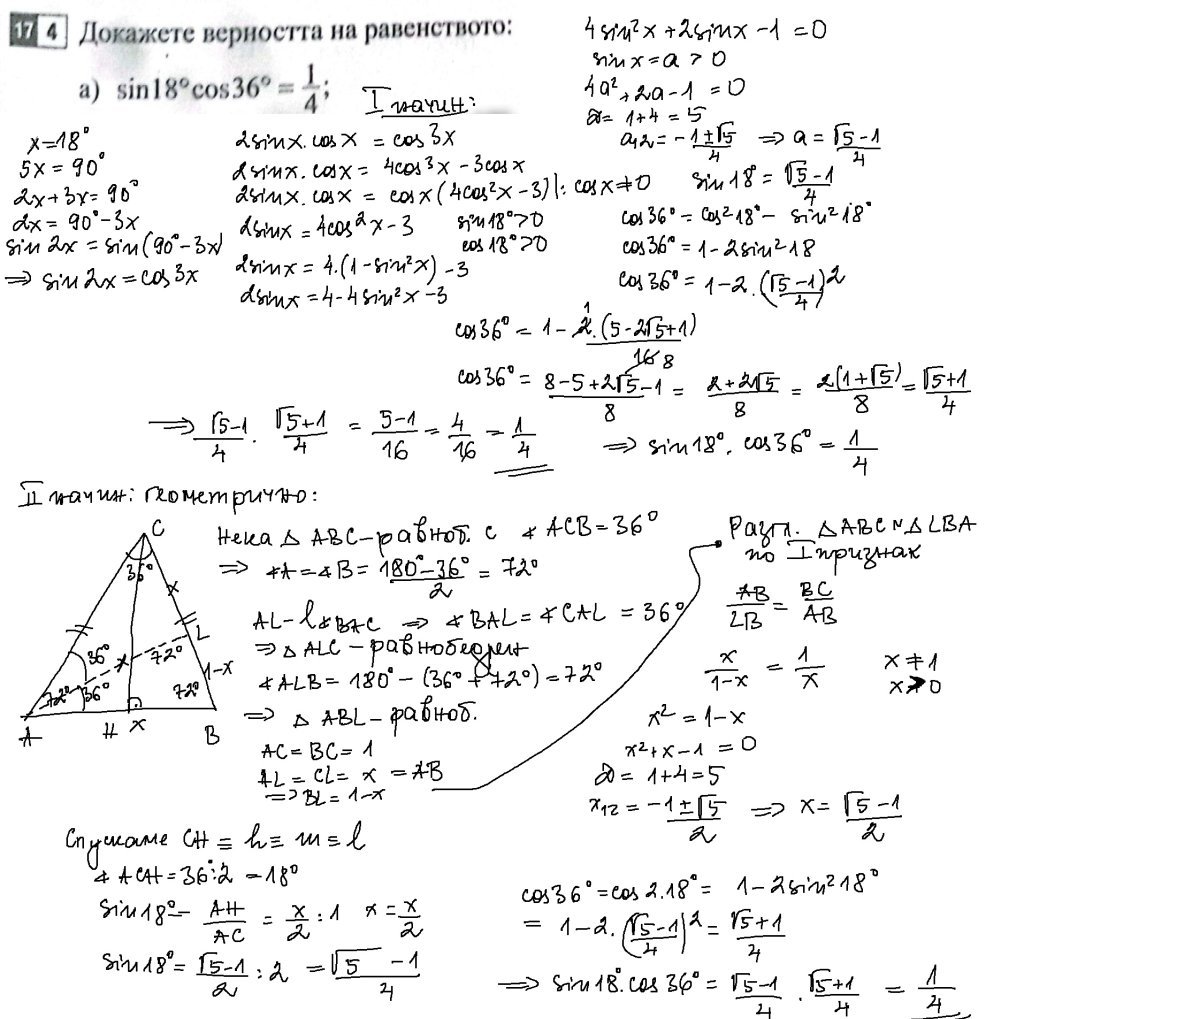 17 4 Докажете верността на равенството:
а) sin18°cos36° = 1/4;
I начин:
x=18°
5x = 90°
2x+3x=90°
2x = 90°-3x
sin 2x = sin(90°-3x)
⇒ sin2x = cos3x
2sinx.cosx = cos3x
2sinx.cosx = 4cos³x-3cosx
2sinx.cosx = cosx(4cos²x-3) |: cosx≠0
2sinx = 4cos²x-3
sin18°>0
cos18°>0
2sinx = 4.(1-sin²x)-3
2sinx = 4-4sin²x-3
4sin²x+2sinx-1=0
sinx=a>0
4a²+2a-1=0
D= 1+4=5
a₁₂= (-1±√5)/4 ⇒ a= (√5-1)/4
sin18°= (√5-1)/4
cos36°= cos²18°- sin²18°
cos36°= 1-2sin²18
cos36°= 1-2.((√5-1)/4)²
cos36°= 1- 2.(5-2√5+1)/16 1 8
cos36°= (8-5+2√5-1)/8 = (2+2√5)/8 = 2(1+√5)/8 = (√5+1)/4
⇒ (√5-1)/4 . (√5+1)/4 = (5-1)/16 = 4/16 = 1/4
⇒ sin18°.cos36°= 1/4
II начин: Геометрично:
C
36°
x
L
36°
x
72°
1-x
72°
36°
72°
A H x B
Нека △ABC-равноб. с ∢ACB=36°
⇒ ∢A=∢B= (180°-36°)/2 = 72°
AL-l∢BAC ⇒ ∢BAL=∢CAL=36°
⇒ △ALC-равнобедрен
∢ALB=180°-(36°+72°)=72°
⇒ △ABL-равноб.
AC=BC=1
AL=CL=x=AB
⇒ BL=1-x
Разгл. △ABC~△LBA
по I признак
AB/LB = BC/AB
x/(1-x) = 1/x
x≠1
x>0
x²=1-x
x²+x-1=0
D=1+4=5
x₁₂= (-1±√5)/2 ⇒ x= (√5-1)/2
Спускаме CH≡h≡m≡l
∢ACH=36°:2=18°
sin18°= AH/AC = x/2 : 1 x = x/2
sin18°= (√5-1)/2 : 2 = (√5-1)/4
cos36°=cos2.18°= 1-2sin²18°
= 1-2.((√5-1)/4)² = (√5+1)/4
⇒ sin18°.cos36°= (√5-1)/4 . (√5+1)/4 = 1/4